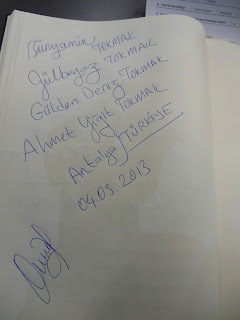 Bünyamin TOKMAK
Gülbeyaz TOKMAK
Gülden Deniz TOKMAK
Ahmet Yiğit TOKMAK
Antalya/TÜRKİYE
04.05.2013